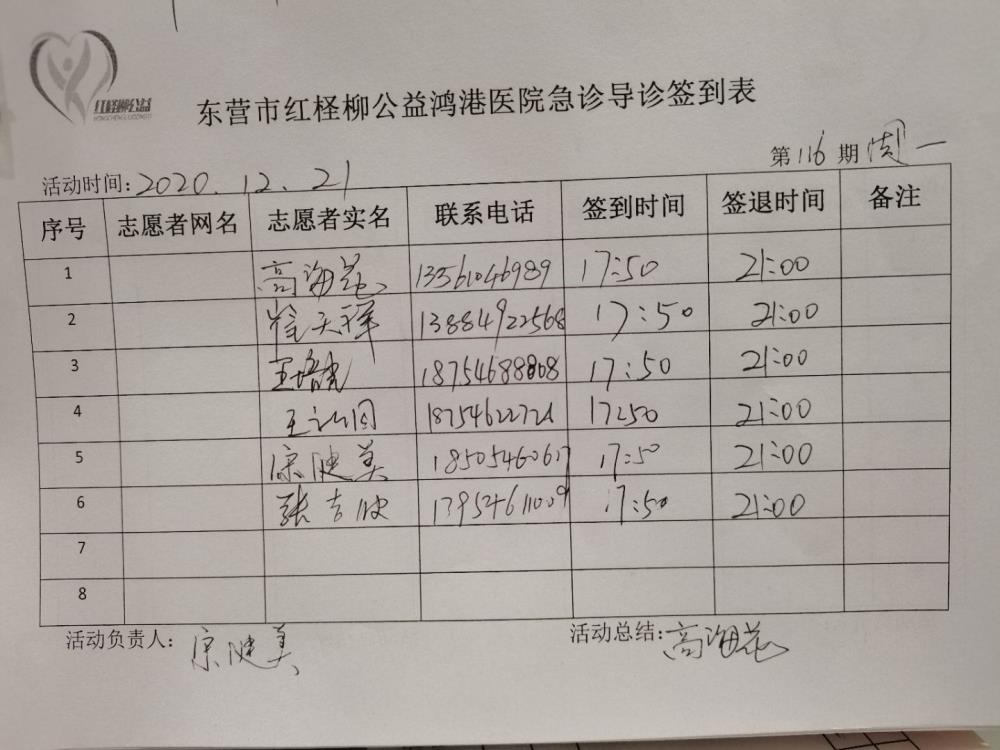 红柽柳公益
东营市红柽柳公益鸿港医院急诊导诊签到表
第116期 周一
活动时间：2020.12.21
序号 志愿者网名 志愿者实名 联系电话 签到时间 签退时间 备注
1 高海花 13561046989 17:50 21:00
2 崔天祥 13884922568 17:50 21:00
3 王培 18754688808 17:50 21:00
4 王 17:50 21:00
5 宗健美 18505460617 17:50 21:00
6 张吉 13954611009 17:50 21:00
7
8
活动负责人：宗健美
活动总结：高海花